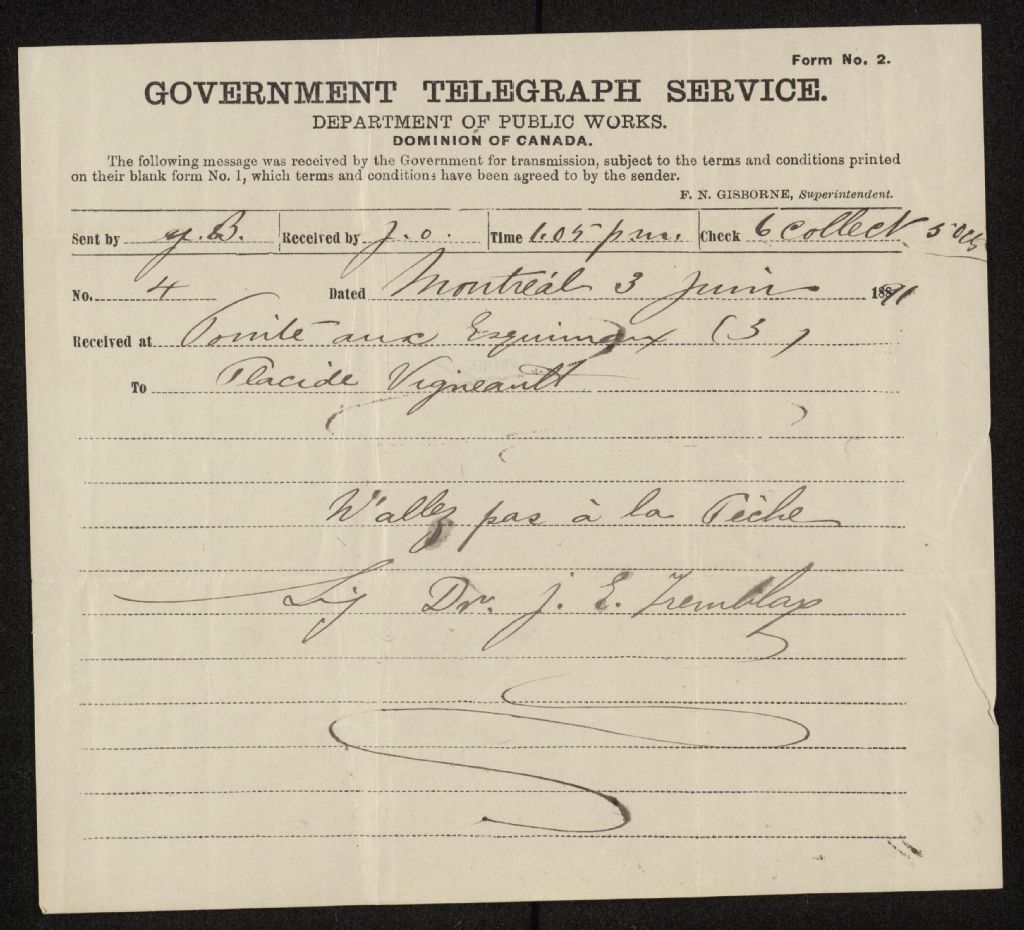 Form No. 2.
GOVERNMENT TELEGRAPH SERVICE.
DEPARTMENT OF PUBLIC WORKS.
DOMINION OF CANADA.
The following message was received by the Government for transmission, subject to the terms and conditions printed
on their blank form No. 1, which terms and conditions have been agreed to by the sender.
F. N. GISBORNE, Superintendent.
Sent by y. B. Received by J. O. Time 1.05 p m. Check 6 Collect 50cts
No. 4 Dated Montréal 3 Juin 1891
Received at Pointe aux Esquimaux (3)
To Placide Vigneault
N'allez pas à la Pêche
Sig Dr. J. E. Tremblay